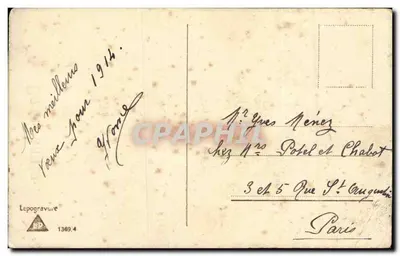 Mes meilleurs
vœux pour 1914.
Yvonne
Mr Yves Ménez
chez Mrs Potel et Chabot
3 et 5 Rue St Augustin
Paris
Lepogravure
1369.4
CRAPHA